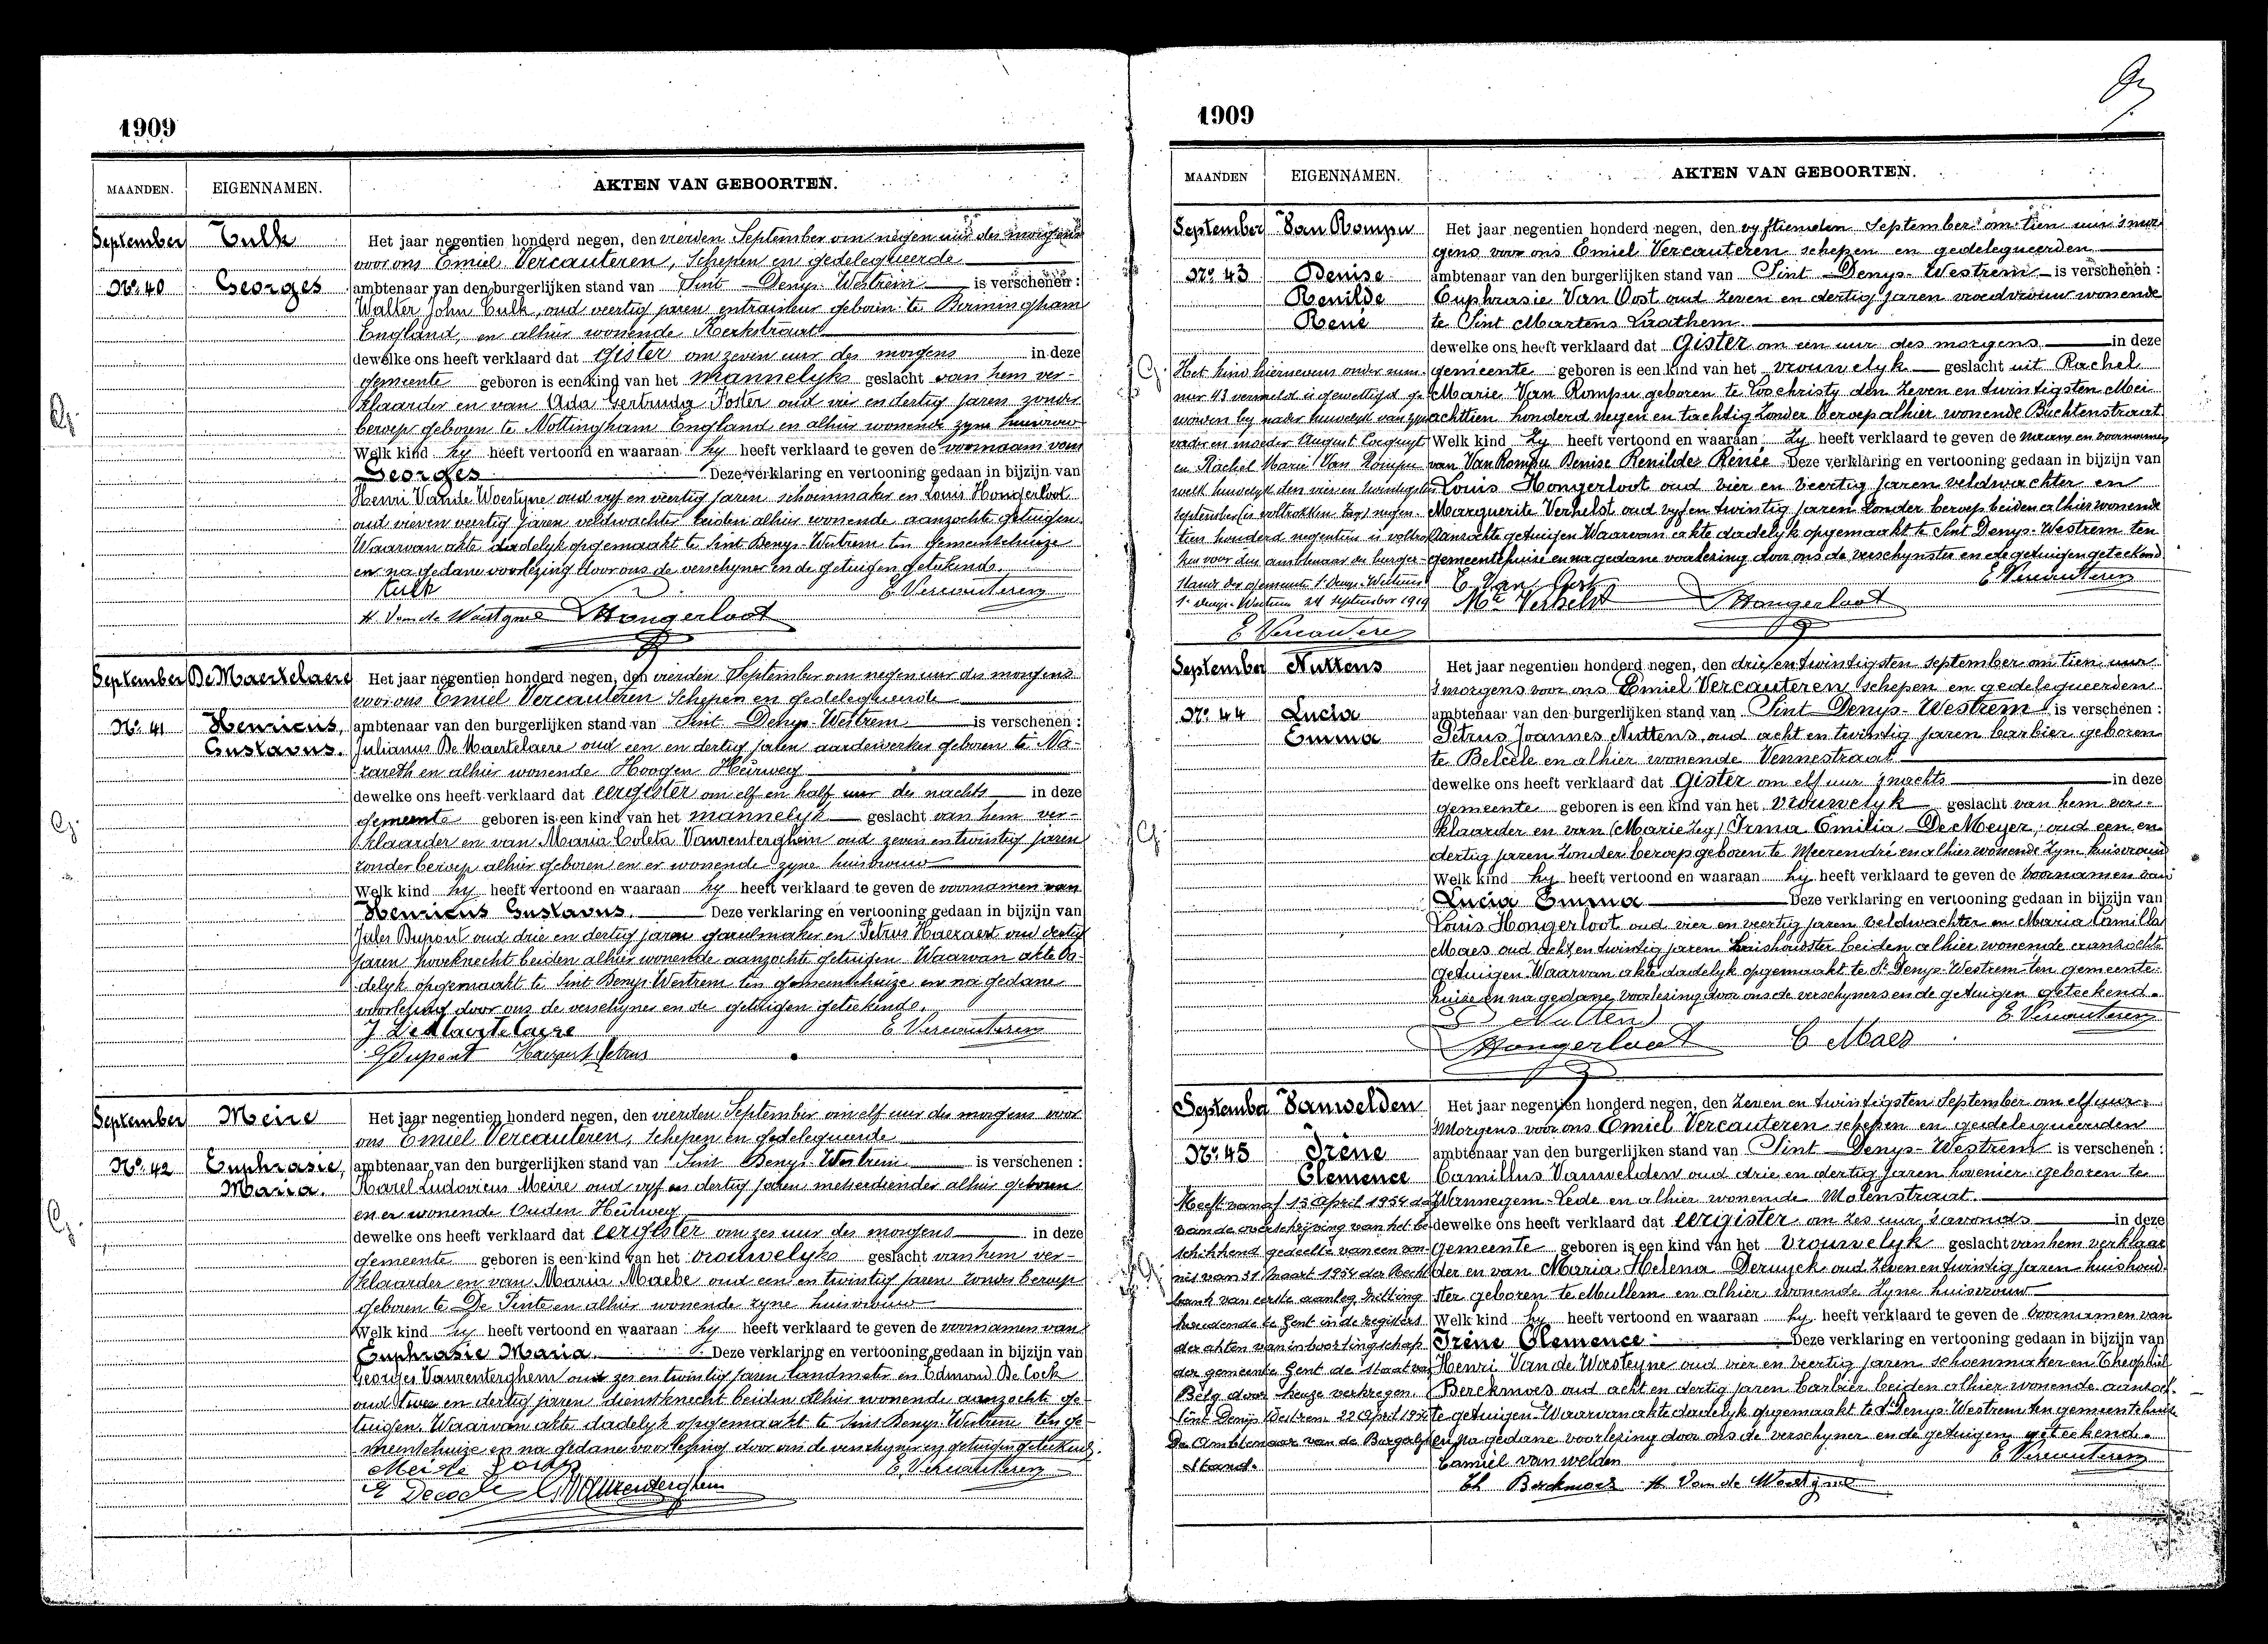 1909
MAANDEN. EIGENNAMEN. AKTEN VAN GEBOORTEN.
September Culk Het jaar negentien honderd negen, den vierden September om negen uur des morgens
voor ons Emiel Vercauteren, Schepen en gedelegueerde
No. 40 Georges ambtenaar van den burgerlijken stand van Sint Denys-Westrem is verschenen :
Walter John Culk, oud veertig jaren entraineur geboren te Birmingham
England, en alhier wonende Kerkstraat
dewelke ons heeft verklaard dat gister om zeven uur des morgens in deze
gemeente geboren is een kind van het mannelyk geslacht van hem ver-
klaarder en van Ada Gertruda Foster oud vier en dertig jaren zonder
beroep geboren te Nottingham England en alhier wonende zyne huisvrouw
Welk kind hy heeft vertoond en waaraan hy heeft verklaard te geven de voornaam van
Georges Deze verklaring en vertooning gedaan in bijzijn van
Henri Van de Woestyne oud vyf en veertig jaren schoenmaker en Louis Hongerloot
oud vier en veertig jaren veldwachter beiden alhier wonende aanzochte getuigen.
Waarvan akte dadelyk opgemaakt te Sint Denys-Westrem ten gemeentehuize
en na gedane voorlezing door ons de verschyner en de getuigen geteekend.
Culk E Vercauteren
H. Van de Woestyne Hongerloot
September De Maertelaere Het jaar negentien honderd negen, den vierden September om negen uur des morgens
voor ons Emiel Vercauteren Schepen en gedelegueerde
No. 41 Henricus, ambtenaar van den burgerlijken stand van Sint Denys-Westrem is verschenen :
Gustavus. Julianus De Maertelaere oud een en dertig jaren aardewerker geboren te Na-
zareth en alhier wonende Hoogen Heirweg
dewelke ons heeft verklaard dat eergister om elf en half uur des nachts in deze
gemeente geboren is een kind van het mannelyk geslacht van hem ver-
klaarder en van Maria Coleta Vanrenterghem oud zeven en twintig jaren
zonder beroep alhier geboren en er wonende zyne huisvrouw
Welk kind hy heeft vertoond en waaraan hy heeft verklaard te geven de voornamen van
Henricus Gustavus. Deze verklaring en vertooning gedaan in bijzijn van
Jules Dupont oud drie en dertig jaren gareelmaker en Petrus Haezaert oud dertig
jaren hoveknecht beiden alhier wonende aanzochte getuigen. Waarvan akte da-
delyk opgemaakt te Sint Denys-Westrem ten gemeentehuize en na gedane
voorlezing door ons de verschyner en de getuigen geteekend.
J. De Maertelaere E. Vercauteren
J Dupont Haezaert Petrus
September Meire Het jaar negentien honderd negen, den vierden September om elf uur des morgens voor
ons Emiel Vercauteren, Schepen en gedelegueerde
No. 42 Euphrasie, ambtenaar van den burgerlijken stand van Sint Denys-Westrem is verschenen :
Maria. Karel Ludovicus Meire oud vyf en dertig jaren metserdiender alhier geboren
en er wonende Ouden Heirweg
dewelke ons heeft verklaard dat eergister om zes uur des morgens in deze
gemeente geboren is een kind van het vrouwelyk geslacht van hem ver-
klaarder en van Maria Maebe oud een en twintig jaren zonder beroep
geboren te De Pinte en alhier wonende zyne huisvrouw
Welk kind hy heeft vertoond en waaraan hy heeft verklaard te geven de voornamen van
Euphrasie Maria. Deze verklaring en vertooning gedaan in bijzijn van
Georges Vanrenterghem oud zes en twintig jaren landmeter en Edmond De Cock
oud twee en dertig jaren dienstknecht beiden alhier wonende aanzochte ge-
tuigen. Waarvan akte dadelyk opgemaakt te Sint Denys-Westrem ten ge-
meentehuize en na gedane voorlezing door ons de verschyner en getuigen geteekend.
Meire E. Vercauteren
E Decock G Vanrenterghem
1909
MAANDEN EIGENNAMEN. AKTEN VAN GEBOORTEN.
September Van Rompu Het jaar negentien honderd negen, den vyftienden September om tien uur 's mor
gens voor ons Emiel Vercauteren schepen en gedelegueerden
No. 43 Denise ambtenaar van den burgerlijken stand van Sint Denys-Westrem is verschenen :
Renilde Euphrasie Van Oost oud zeven en dertig jaren vroedvrouw wonende
René te Sint Martens Laathem
dewelke ons heeft verklaard dat Gister om een uur des morgens in deze
Het kind hiernevens onder num- gemeente geboren is een kind van het vrouwelyk geslacht uit Rachel
mer 43 vermeld is gewettigd ge- Marie Van Rompu geboren te Loochristy den zeven en twintigsten Mei
worden by nader huwelyk van zyn achttien honderd negen en tachtig zonder beroep alhier wonende Buchtenstraat
vader en moeder August Cocquyt Welk kind zy heeft vertoond en waaraan zy heeft verklaard te geven de naam en voornamen
en Rachel Marie Van Rompu van Van Rompu Denise Renilde Renée Deze verklaring en vertooning gedaan in bijzijn van
welk huwelyk den vier en twintigsten Louis Hongerloot oud vier en veertig jaren veldwachter en
september (is voltrokken leg) negen- Marguerite Verhelst oud vyf en twintig jaren zonder beroep beiden alhier wonende
tien honderd negentien is voltrok aanzochte getuigen Waarvan akte dadelyk opgemaakt te Sint Denys-Westrem ten
ken voor den ambtenaar des burger- gemeentehuize en na gedane voorlezing door ons de verschynster en de getuigen geteekend
stands der gemeente St Denys-Westrem E. Van Oost E. Vercauteren
St Denys-Westrem 24 september 1919 Mte Verhelst Hongerloot
E Vercauteren
September Nuttens Het jaar negentien honderd negen, den drie en twintigsten September om tien uur
s'morgens voor ons Emiel Vercauteren schepen en gedelegueerden
No. 44 Lucia ambtenaar van den burgerlijken stand van Sint Denys-Westrem is verschenen :
Emma Petrus Joannes Nuttens oud acht en twintig jaren barbier geboren
te Belcele en alhier wonende Vennestraat
dewelke ons heeft verklaard dat Gister om elf uur s'nachts in deze
gemeente geboren is een kind van het vrouwelyk geslacht van hem ver-
klaarder en van (Marie leg) Irma Emilia De Meyer, oud een en
dertig jaren zonder beroep geboren te Meerendré en alhier wonende zyne huisvrouw
Welk kind hy heeft vertoond en waaraan hy heeft verklaard te geven de voornamen van
Lucia Emma Deze verklaring en vertooning gedaan in bijzijn van
Louis Hongerloot oud vier en veertig jaren veldwachter en Maria Camilla
Maes oud acht en twintig jaren huishoudster beiden alhier wonende aanzochte
getuigen. Waarvan akte dadelyk opgemaakt te St Denys-Westrem ten gemeente-
huize en na gedane voorlezing door ons de verschyners en de getuigen geteekend.
Nuttens E. Vercauteren
Hongerloot C Maes
September Vanwelden Het jaar negentien honderd negen, den Zeven en twintigsten September om elf uur
's Morgens voor ons Emiel Vercauteren schepen en gedelegueerden
No. 45 Irène ambtenaar van den burgerlijken stand van Sint Denys-Westrem is verschenen :
Clemence Camillus Vanwelden oud drie en dertig jaren hovenier geboren te
Heeft vanaf 15 April 1954 dag Wannegem-Lede en alhier wonende Molenstraat.
van de overschrijving van het be- dewelke ons heeft verklaard dat eergister om zes uur s'avonds in deze
schikkend gedeelte van een von- Gemeente geboren is een kind van het vrouwelyk geslacht van hem verklaar
nis van 31 maart 1954 der Recht der en van Maria Helena Deruyck oud zeven en twintig jaren huishoud
bank van eerste aanleg zitting ster geboren te Mullem en alhier wonende zyne huisvrouw
houdende te Gent in de registers Welk kind hy heeft vertoond en waaraan hy heeft verklaard te geven de voornamen van
der akten van inboorlingschap Irène Clemence Deze verklaring en vertooning gedaan in bijzijn van
der gemeente Gent de staat van Henri Van de Woesteyne oud vier en veertig jaren schoenmaker en Theophiel
Belg door keuze verkregen. Berckmoes oud acht en dertig jaren barbier beiden alhier wonende aanzoch-
Sint Denijs Westrem 22 April 1954 te getuigen. Waarvan akte dadelyk opgemaakt te St Denys-Westrem ten gemeentehuize
De Ambtenaar van de Burgerlijke en na gedane voorlezing door ons de verschyner en de getuigen geteekend.
Stand. Camiel van welden E Vercauteren
Th Berckmoes H. Van de Woestyne